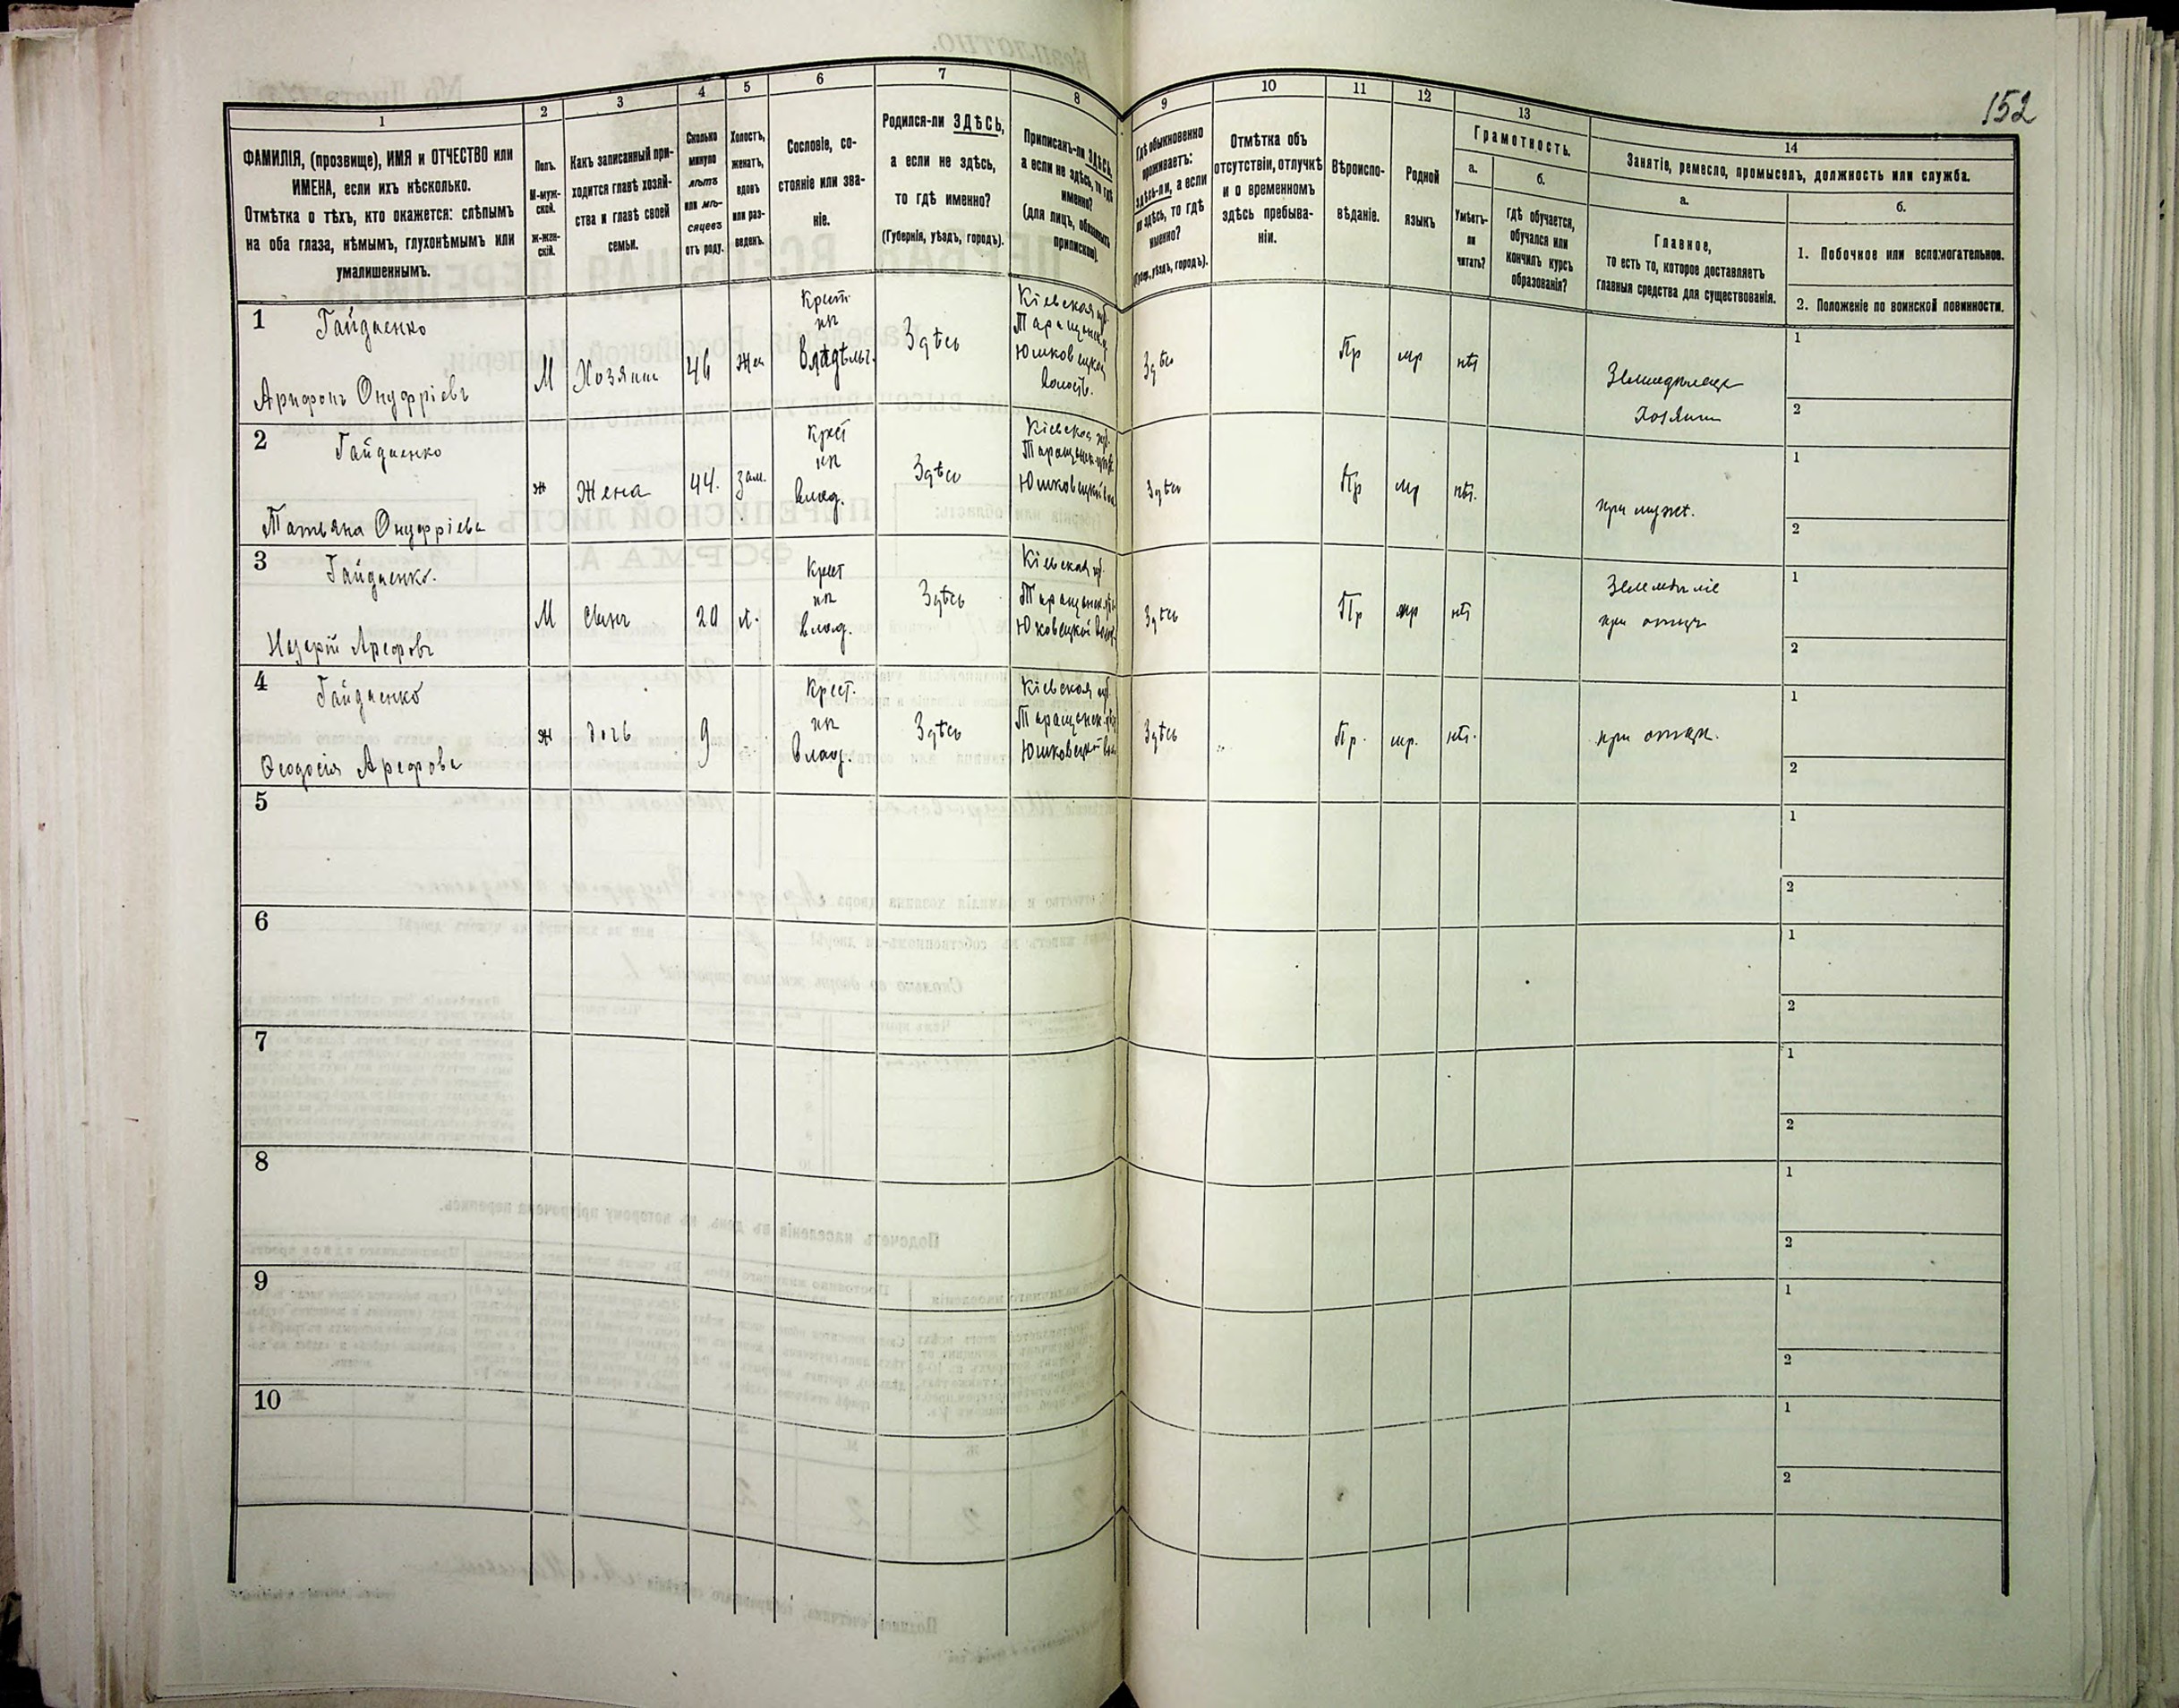 152
1
2
3
4
5
6
7
8
9
10
11
12
13
14
ФАМИЛІЯ, (прозвище), ИМЯ и ОТЧЕСТВО или
ИМЕНА, если ихъ нѣсколько.
Отмѣтка о тѣхъ, кто окажется: слѣпымъ
на оба глаза, нѣмымъ, глухонѣмымъ или
умалишеннымъ.
Полъ.
М-муж-
ской.
ж-жен-
скій.
Какъ записанный при-
ходится главѣ хозяй-
ства и главѣ своей
семьи.
Сколько
минуло
лѣтъ
или мѣ-
сяцевъ
отъ роду.
Холостъ,
женатъ,
вдовъ
или раз-
веденъ.
Сословіе, со-
стояніе или зва-
ніе.
Родился-ли ЗДѢСЬ,
а если не здѣсь,
то гдѣ именно?
(Губернія, уѣздъ, городъ).
Приписанъ-ли ЗДѢСЬ,
а если не здѣсь, то гдѣ
именно?
(для лицъ, обязанныхъ
припиской).
Гдѣ обыкновенно
проживаетъ:
здѣсь-ли, а если
не здѣсь, то гдѣ
именно?
(Губер., уѣздъ, городъ).
Отмѣтка объ
отсутствіи, отлучкѣ
и о временномъ
здѣсь пребыва-
ніи.
Вѣроиспо-
вѣданіе.
Родной
языкъ
Грамотность.
а.
Умѣетъ-
ли
читать?
б.
гдѣ обучается,
обучался или
кончилъ курсъ
образованія?
Занятіе, ремесло, промыселъ, должность или служба.
а.
Главное,
то есть то, которое доставляетъ
главныя средства для существованія.
б.
1. Побочное или вспомогательное.
2. Положеніе по воинской повинности.
1
Гайдаенко
Онуфріевъ
М
Хозяинъ
46
Жен
Крест.
Здѣсь
Кіевская губ.
Здѣсь
Пр
мр
нѣт
Хозяин
1
2
2
Гайдаенко
Татьяна Онуфріева
ж
Жена
44.
Зам.
Крест
влад.
Здѣсь
Кіевская губ.
Здѣсь
Пр
мр
нѣт.
при мужѣ.
1
2
3
Гайдаенко.
Арефовъ
М
Сынъ
20
х.
Крест
влад.
Здѣсь
Кіевская губ.
Здѣсь
Пр
мр
нѣт
при отцѣ
1
2
4
Гайдаенко
Феодосія Арефова
ж
дочь
9
Крест.
влад.
Здѣсь
Кіевская губ.
Здѣсь
Пр.
мр.
нѣт.
при отцѣ.
1
2
5
1
2
6
1
2
7
1
2
8
1
2
9
1
2
10
1
2